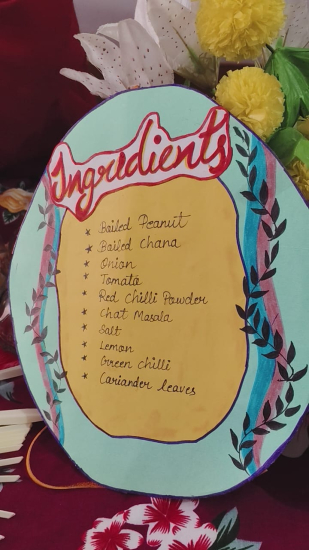 Ingredients
* Boiled Peanut
* Boiled Chana
* Onion
* Tomato
* Red Chilli Powder
* Chat Masala
* Salt
* Lemon
* Green chilli
* Coriander leaves